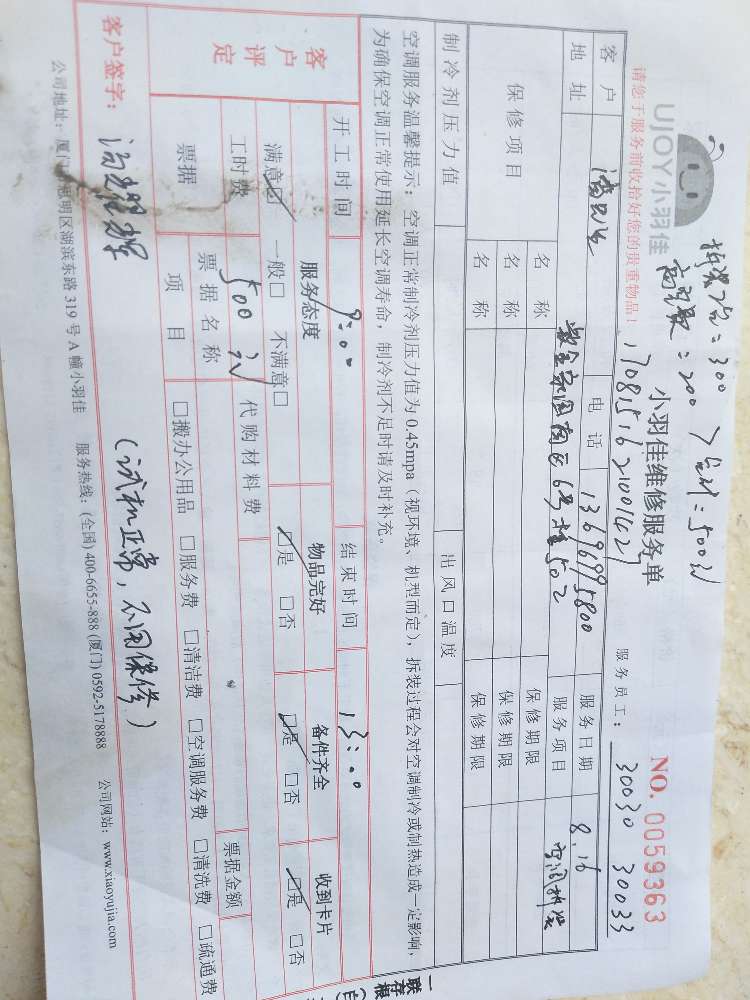 拆装费=300
高空费=200 > 合计=500元
UJOY小羽佳
小羽佳维修服务单
NO. 0059363
170815162100142
请您于服务前收拾好您的贵重物品!
服务员工: 30030 30033
客户 电话 13696995800 服务日期 8.16
地址 南区6号楼502 服务项目 空调拆装
保修项目 名称 保修期限
名称 保修期限
名称 保修期限
制冷剂压力值 出风口温度
空调服务温馨提示:空调正常制冷剂压力值为0.45mpa(视环境、机型而定),拆装过程会对空调制冷或制热造成一定影响,
为确保空调正常使用延长空调寿命,制冷剂不足时请及时补充。
开工时间 9:00 结束时间 13:00
客户评定 服务态度 物品完好 备件齐全 收到卡片
满意☑ 一般□ 不满意□ ☑是 □否 ☑是 □否 ☑是 □否
工时费 500元 代购材料费 票据金额
票据 票据名称
项目 □搬办公用品 □服务费 □清洁费 □空调服务费 □清洗费 □疏通费
客户签字: (试机正常,不用保修)
公司地址:厦门 思明区湖滨东路319号A幢小羽佳 服务热线:(全国)400-6655-888 (厦门) 0592-5178888 公司网站:www.xiaoyujia.com
一联存根(白